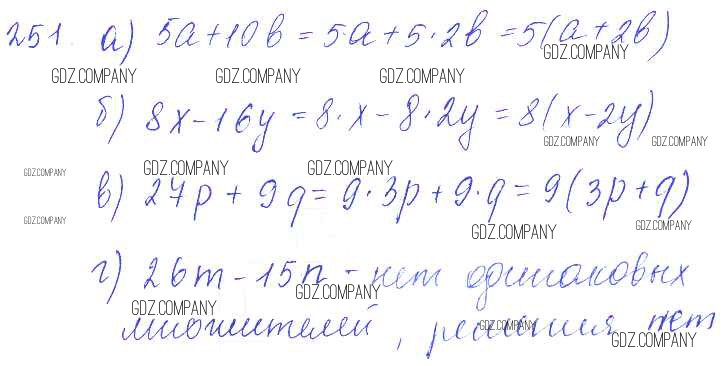 251. а) 5a+10b = 5·a+5·2b = 5(a+2b)
GDZ.COMPANY
GDZ.COMPANY GDZ.COMPANY GDZ.COMPANY
б) 8x-16y = 8·x-8·2y = 8(x-2y)
GDZ.COMPANY GDZ.COMPANY
GDZ.COMPANY GDZ.COMPANY GDZ.COMPANY
в) 27p+9q = 9·3p+9·q = 9(3p+q)
GDZ.COMPANY GDZ.COMPANY GDZ.COMPANY
г) 26m-15n - нет одинаковых
GDZ.COMPANY
GDZ.COMPANY
множителей, решения нет
GDZ.COMPANY
GDZ.COMPANY